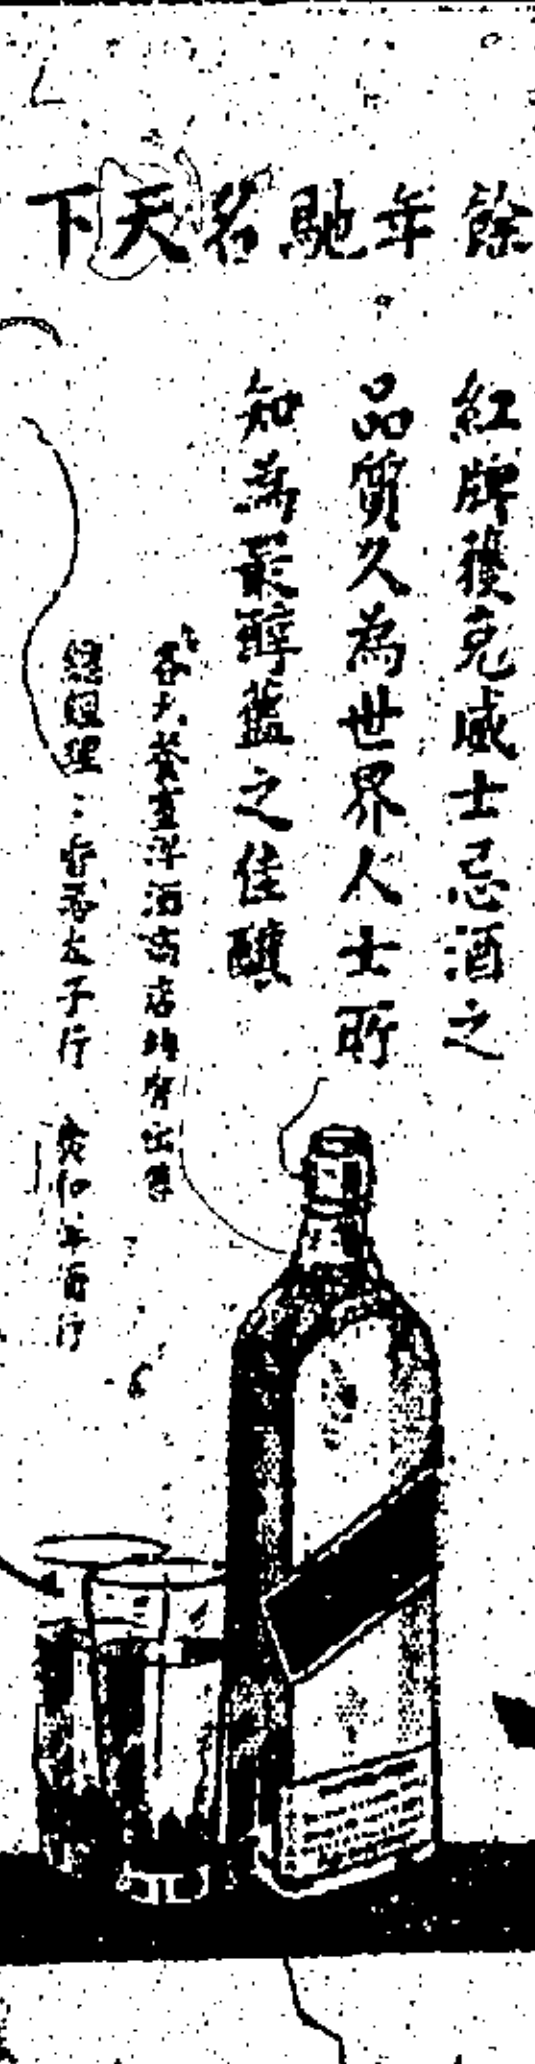 餘年馳名天下
紅牌穫克威士忌酒之
品質久為世界人士所
知為最醇藍之佳釀
各大茶室洋酒店均有出售
總經理：香港太子行